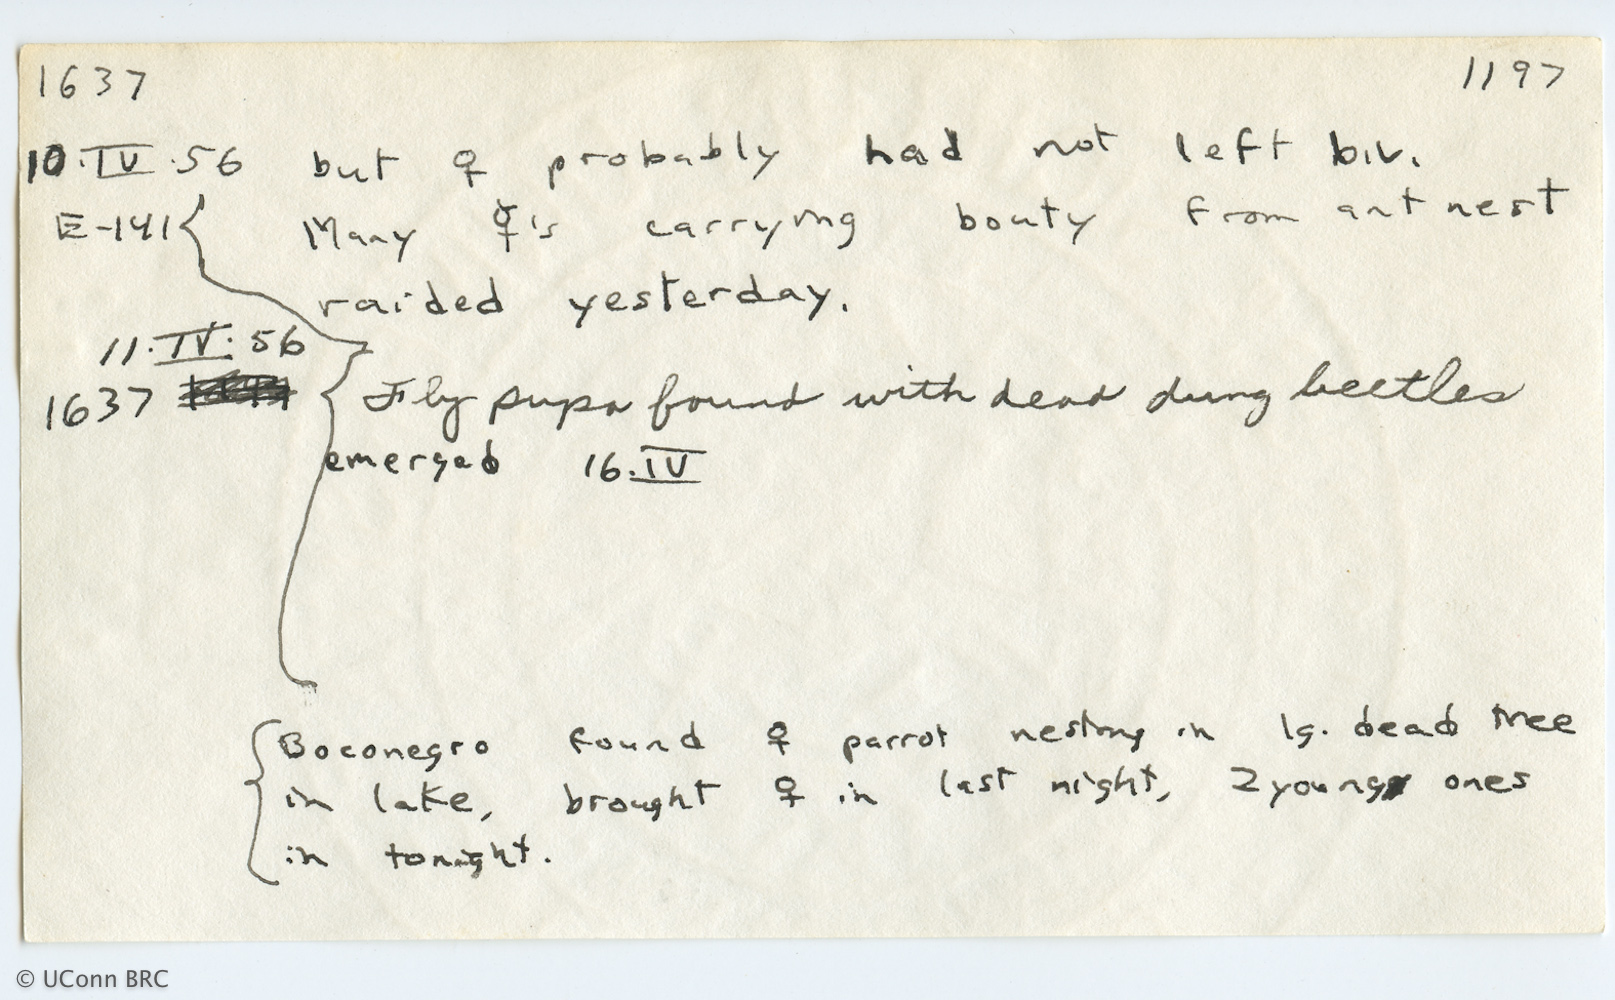 1637 1197
10·IV·56 but ♀ probably had not left biv.
E-141 Many ☿'s carrying booty from ant nest
raided yesterday.
11·IV·56
1637 Fly pupa found with dead dung beetles
emerged 16.IV
Boconegro found ♀ parrot nesting in lg. dead tree
in lake, brought ♀ in last night, 2 young ones
in tonight.
© UConn BRC